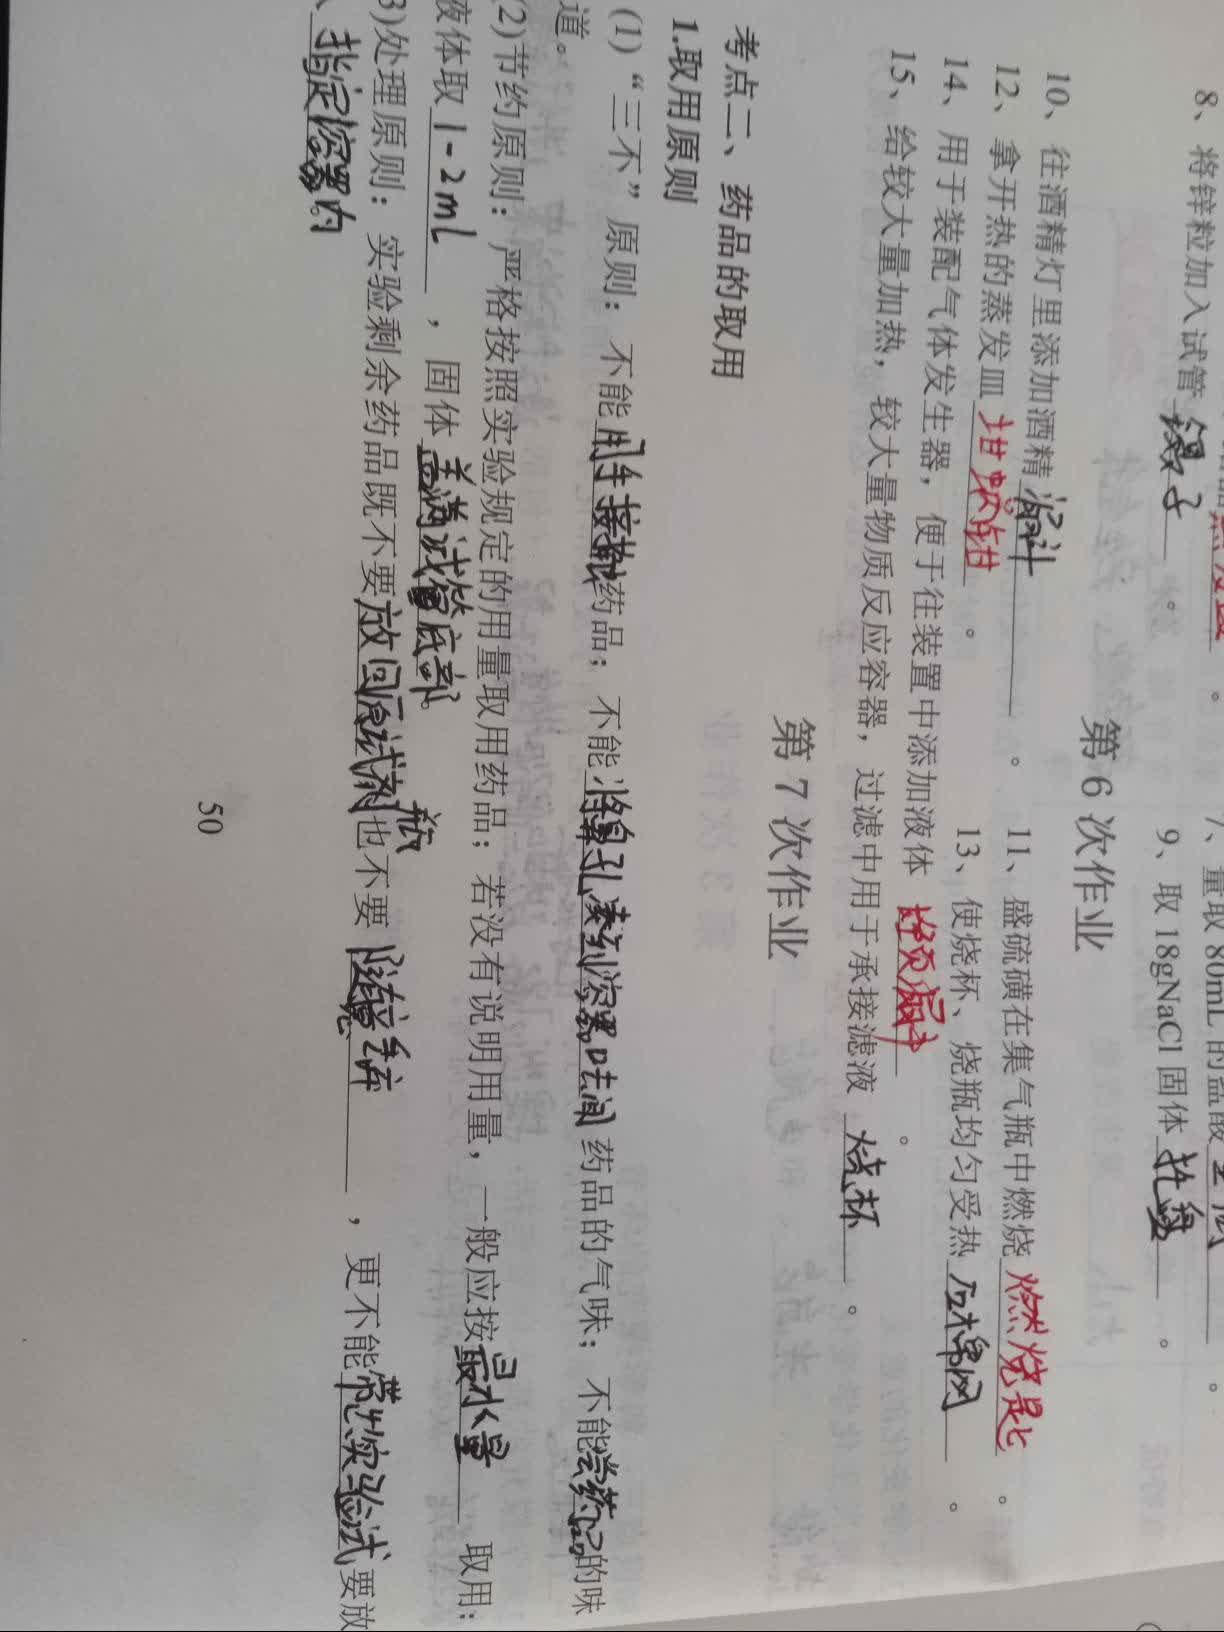 7、量取 80mL 的盐酸
8、将锌粒加入试管 镊子 。 9、取 18gNaCl 固体 托盘 。
第 6 次作业
10、往酒精灯里添加酒精 漏斗 。 11、盛硫磺在集气瓶中燃烧 燃烧匙 。
12、拿开热的蒸发皿 坩埚钳 。 13、使烧杯、烧瓶均匀受热 石棉网 。
14、用于装配气体发生器，便于往装置中添加液体 长颈漏斗 。
15、给较大量加热，较大量物质反应容器，过滤中用于承接滤液 烧杯 。
第 7 次作业
考点二、药品的取用
1.取用原则
(1)“三不”原则：不能用手接触药品；不能将鼻孔凑到容器口去闻药品的气味；不能尝药品的味
道。
(2)节约原则：严格按照实验规定的用量取用药品；若没有说明用量，一般应按最少量 取用：
液体取 1-2ml ，固体盖满试管底部。
3)处理原则：实验剩余药品既不要放回原试剂瓶也不要 随意丢弃 ，更不能带出实验室要放
入 指定容器内
50